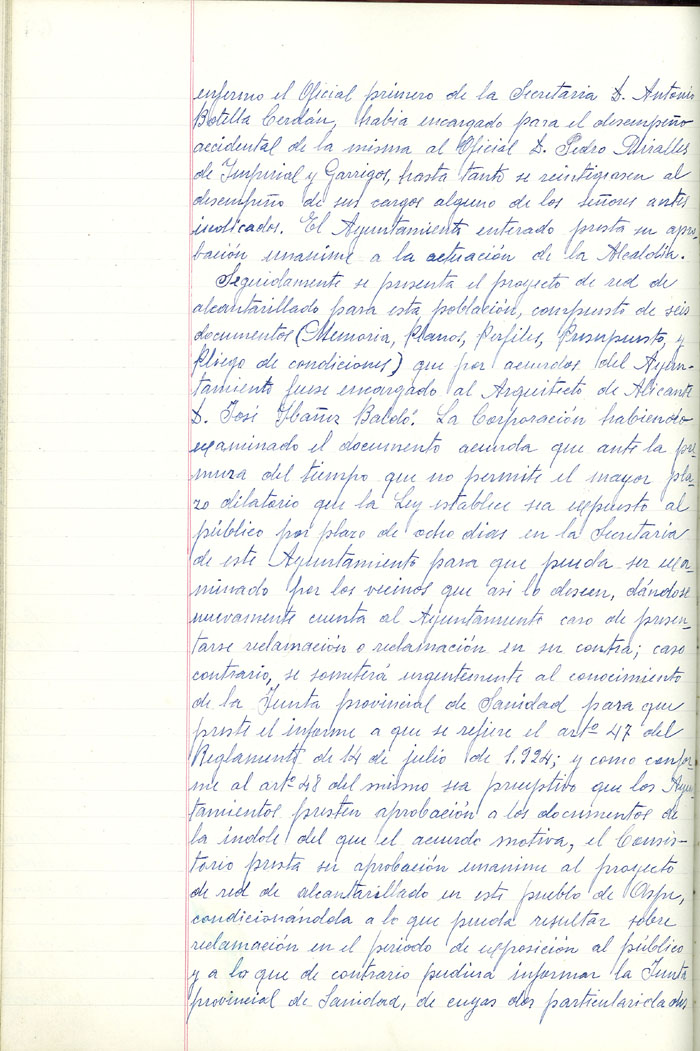 enfermo el Oficial primero de la Secretaria D. Antonio
Botella Cerdán, habia encargado para el desempeño
accidental de la misma al Oficial D. Pedro Miralles
de Imperial y Garrigos, hasta tanto se reintegrasen al
desempeño de sus cargos alguno de los señores antes
indicados. El Ayuntamiento enterado presta su apro-
bación unanime a la actuación de la Alcaldia.
Seguidamente se presenta el proyecto de red de
alcantarillado para esta población, compuesto de seis
documentos (Memoria, Planos, Perfiles, Presupuesto, y
Pliego de condiciones) que por acuerdos del Ayun-
tamiento fuese encargado al Arquitecto de Alicante
D. José Ibañez Baldó. La Corporación habiendo
examinado el documento acuerda que ante la pre-
mura del tiempo que no permite el mayor pla-
zo dilatorio que la Ley establece sea expuesto al
público por plazo de ocho dias en la Secretaría
de este Ayuntamiento para que pueda ser exa-
minado por los vecinos que asi lo deseen, dándose
nuevamente cuenta al Ayuntamiento caso de presen-
tarse reclamación o reclamación en su contra; caso
contrario, se someterá urgentemente al conocimiento
de la Junta provincial de Sanidad para que
preste el informe a que se refiere el artº 47 del
Reglamento de 14 de julio de 1.924; y como confor-
me al artº 48 del mismo sea preceptivo que los Ayun
tamientos presten aprobación a los documentos de
la índole del que el acuerdo motiva, el Consis-
torio presta su aprobación unanime al proyecto
de red de alcantarillado en este pueblo de Aspe,
condicionándola a lo que pueda resultar sobre
reclamación en el periodo de exposición al público
y a lo que de contrario pudiera informar la Junta
provincial de Sanidad, de cuyas dos particularidades